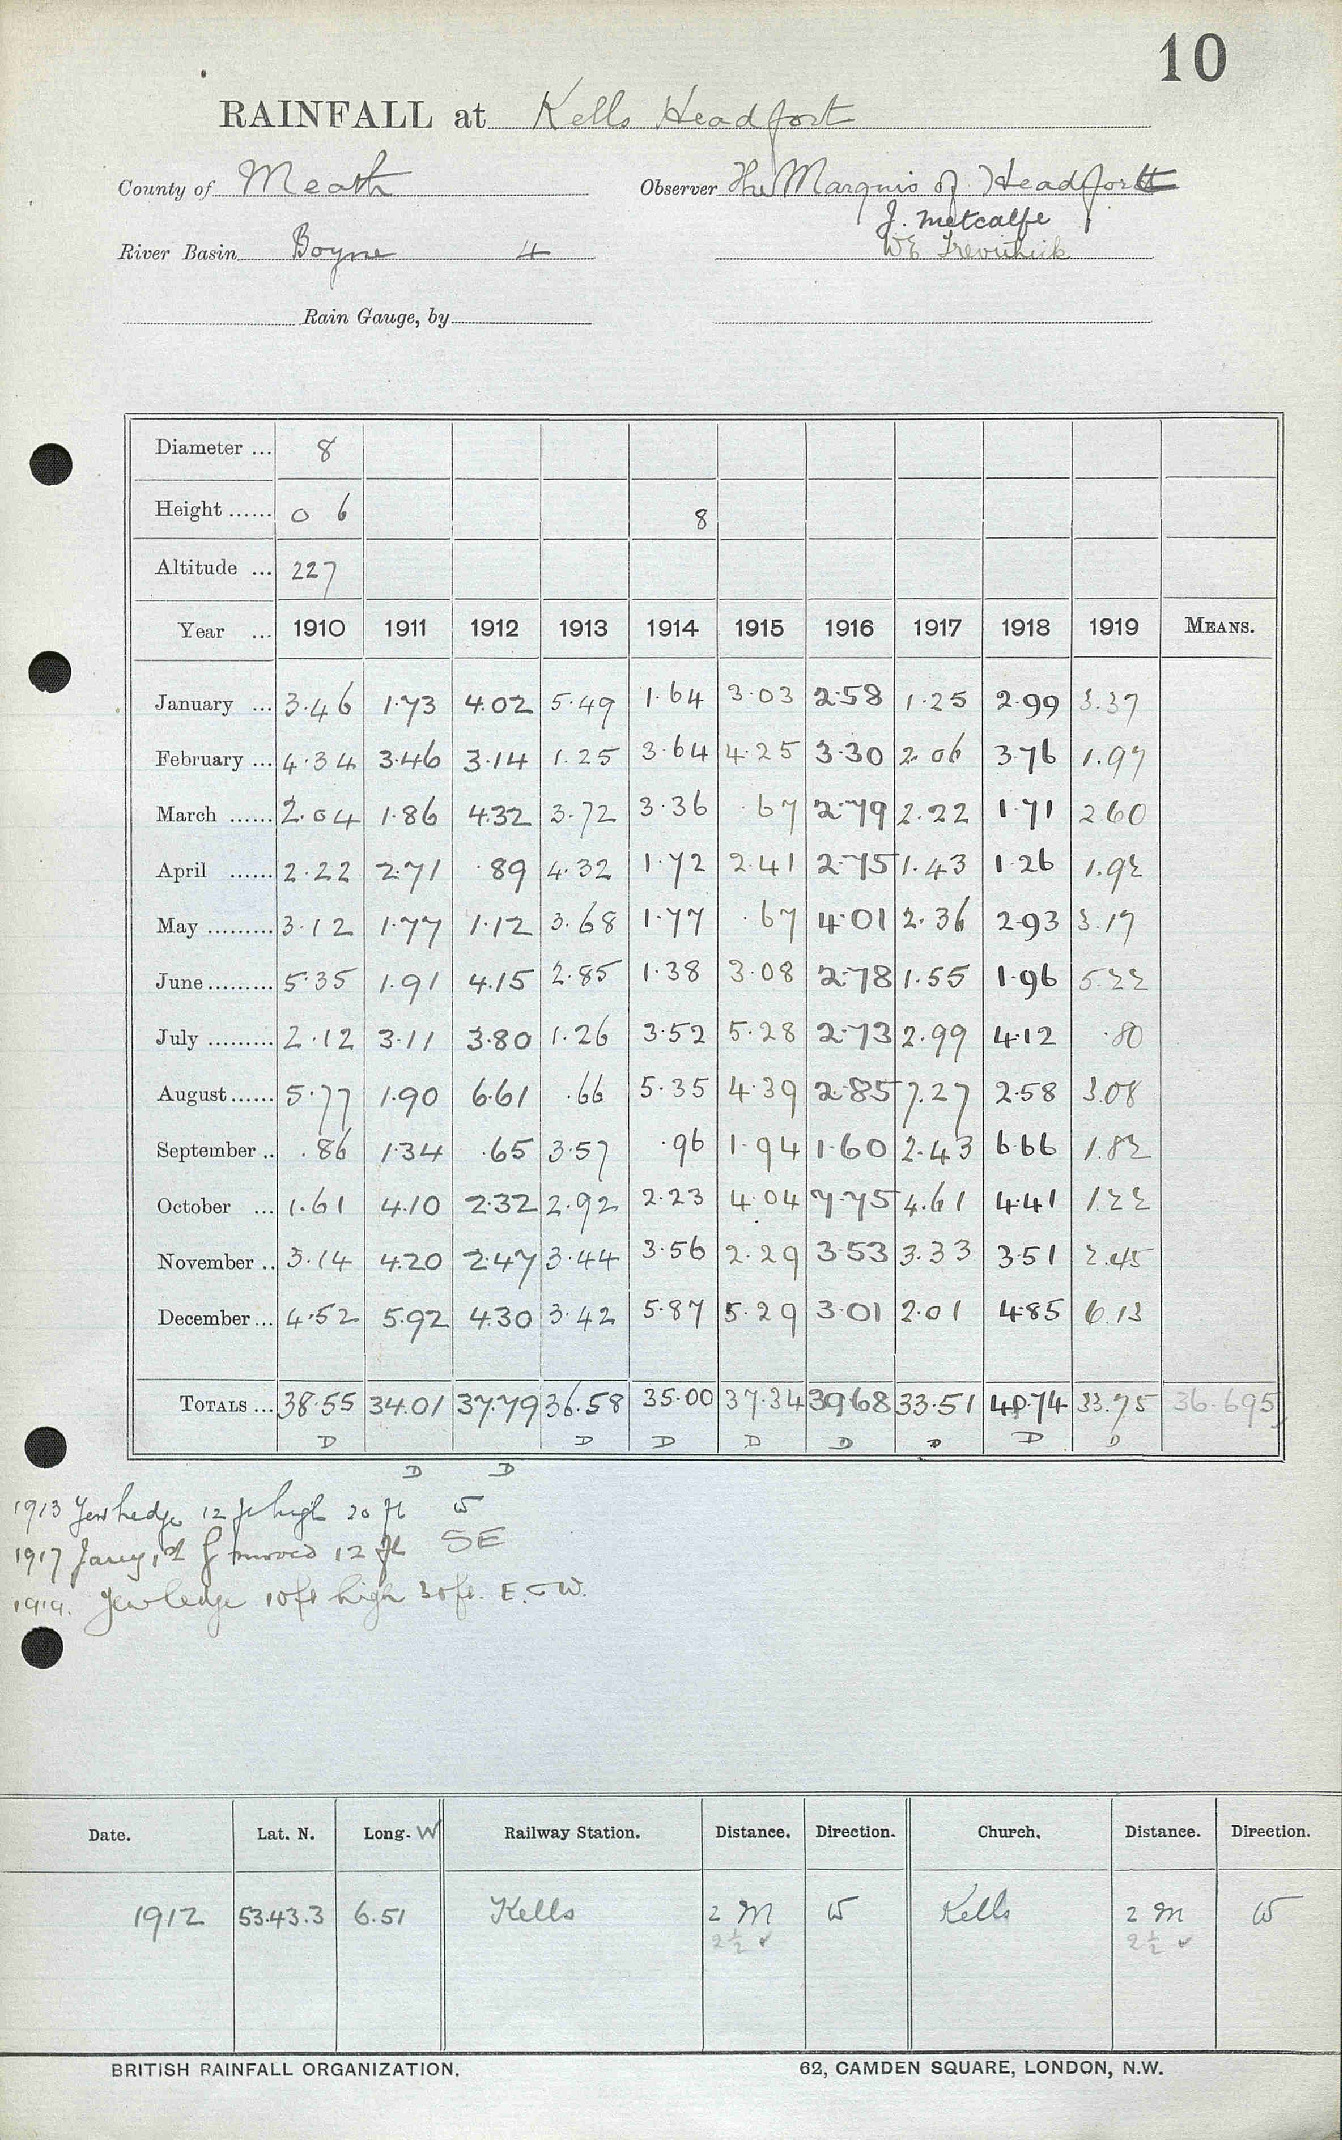 10
RAINFALL at Kells Headfort
County of Meath Observer The Marquis of Headfort
J. Metcalfe
River Basin Boyne 4 WE Trevithick
Rain Gauge, by
Diameter ... 8
Height ...... 0 6 8
Altitude ... 227
Year ... 1910 1911 1912 1913 1914 1915 1916 1917 1918 1919 MEANS.
January ... 3.46 1.73 4.02 5.49 1.64 3.03 2.58 1.25 2.99 3.37
February ... 4.34 3.46 3.14 1.25 3.64 4.25 3.30 2.06 3.76 1.97
March ...... 2.04 1.86 4.32 3.72 3.36 .67 2.79 2.22 1.71 2.60
April ...... 2.22 2.71 .89 4.32 1.72 2.41 2.75 1.43 1.26 1.92
May ......... 3.12 1.77 1.12 3.68 1.77 .67 4.01 2.36 2.93 3.17
June ......... 5.35 1.91 4.15 2.85 1.38 3.08 2.78 1.55 1.96 5.22
July ......... 2.12 3.11 3.80 1.26 3.52 5.28 2.73 2.99 4.12 .80
August ...... 5.77 1.90 6.61 .66 5.35 4.39 2.85 7.27 2.58 3.08
September .. .86 1.34 .65 3.57 .96 1.94 1.60 2.43 6.66 1.82
October ... 1.61 4.10 2.32 2.92 2.23 4.04 7.75 4.61 4.41 1.22
November .. 3.14 4.20 2.47 3.44 3.56 2.29 3.53 3.33 3.51 2.45
December ... 4.52 5.92 4.30 3.42 5.87 5.29 3.01 2.01 4.85 6.13
TOTALS ... 38.55 34.01 37.79 36.58 35.00 37.34 39.68 33.51 40.74 33.75 36.695
D D D D D D D D
D D
1913 Yew hedge 12 ft high 20 ft W
1917 Jany 1st G moved 12 ft SE
1919. Yew hedge 10 ft high 30 ft. E. & W.
Date. Lat. N. Long. W Railway Station. Distance. Direction. Church. Distance. Direction.
1912 53.43.3 6.51 Kells 2 M W Kells 2 M W
2½ ✓ 2½ ✓
BRITISH RAINFALL ORGANIZATION. 62, CAMDEN SQUARE, LONDON, N.W.